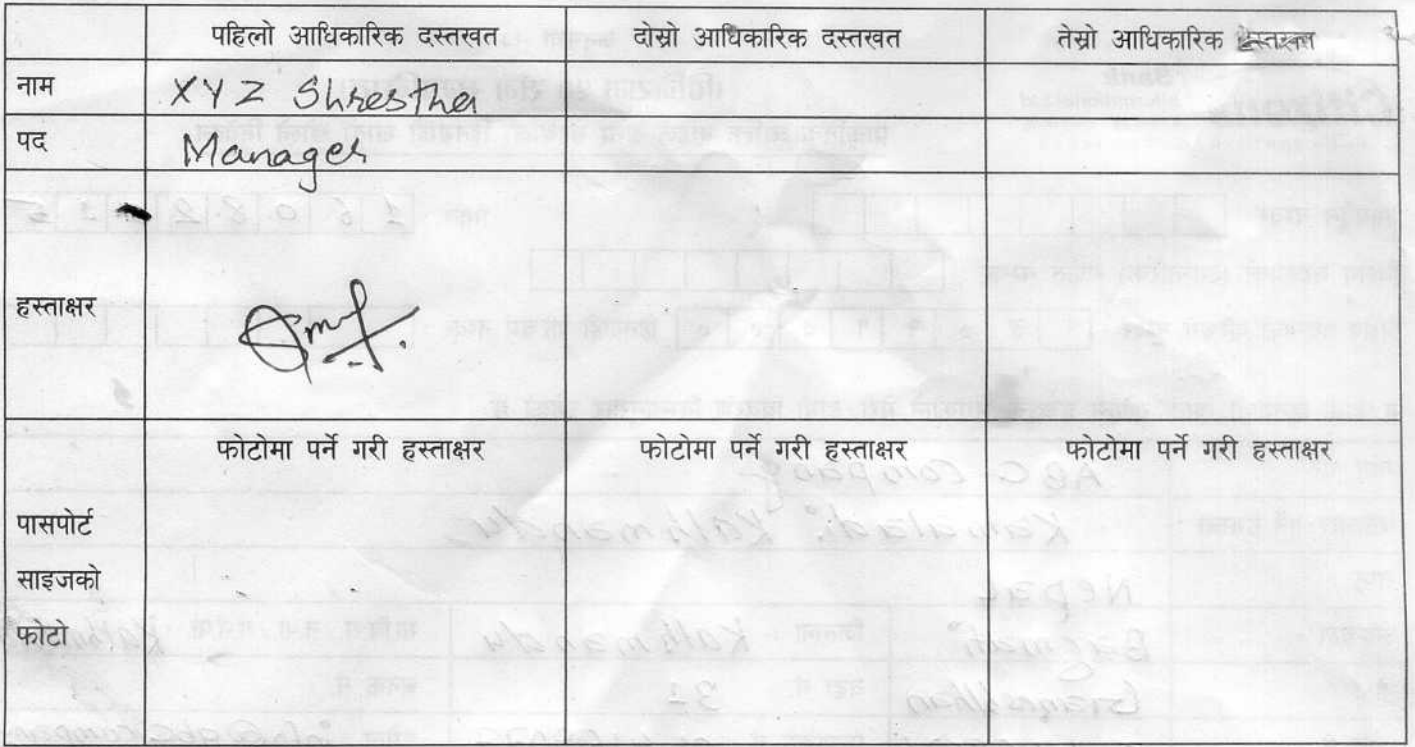 पहिलो आधिकारिक दस्तखत दोस्रो आधिकारिक दस्तखत तेस्रो आधिकारिक दस्तखत
नाम XYZ Shrestha
पद Manager
हस्ताक्षर
फोटोमा पर्ने गरी हस्ताक्षर फोटोमा पर्ने गरी हस्ताक्षर फोटोमा पर्ने गरी हस्ताक्षर
पासपोर्ट
साइजको
फोटो